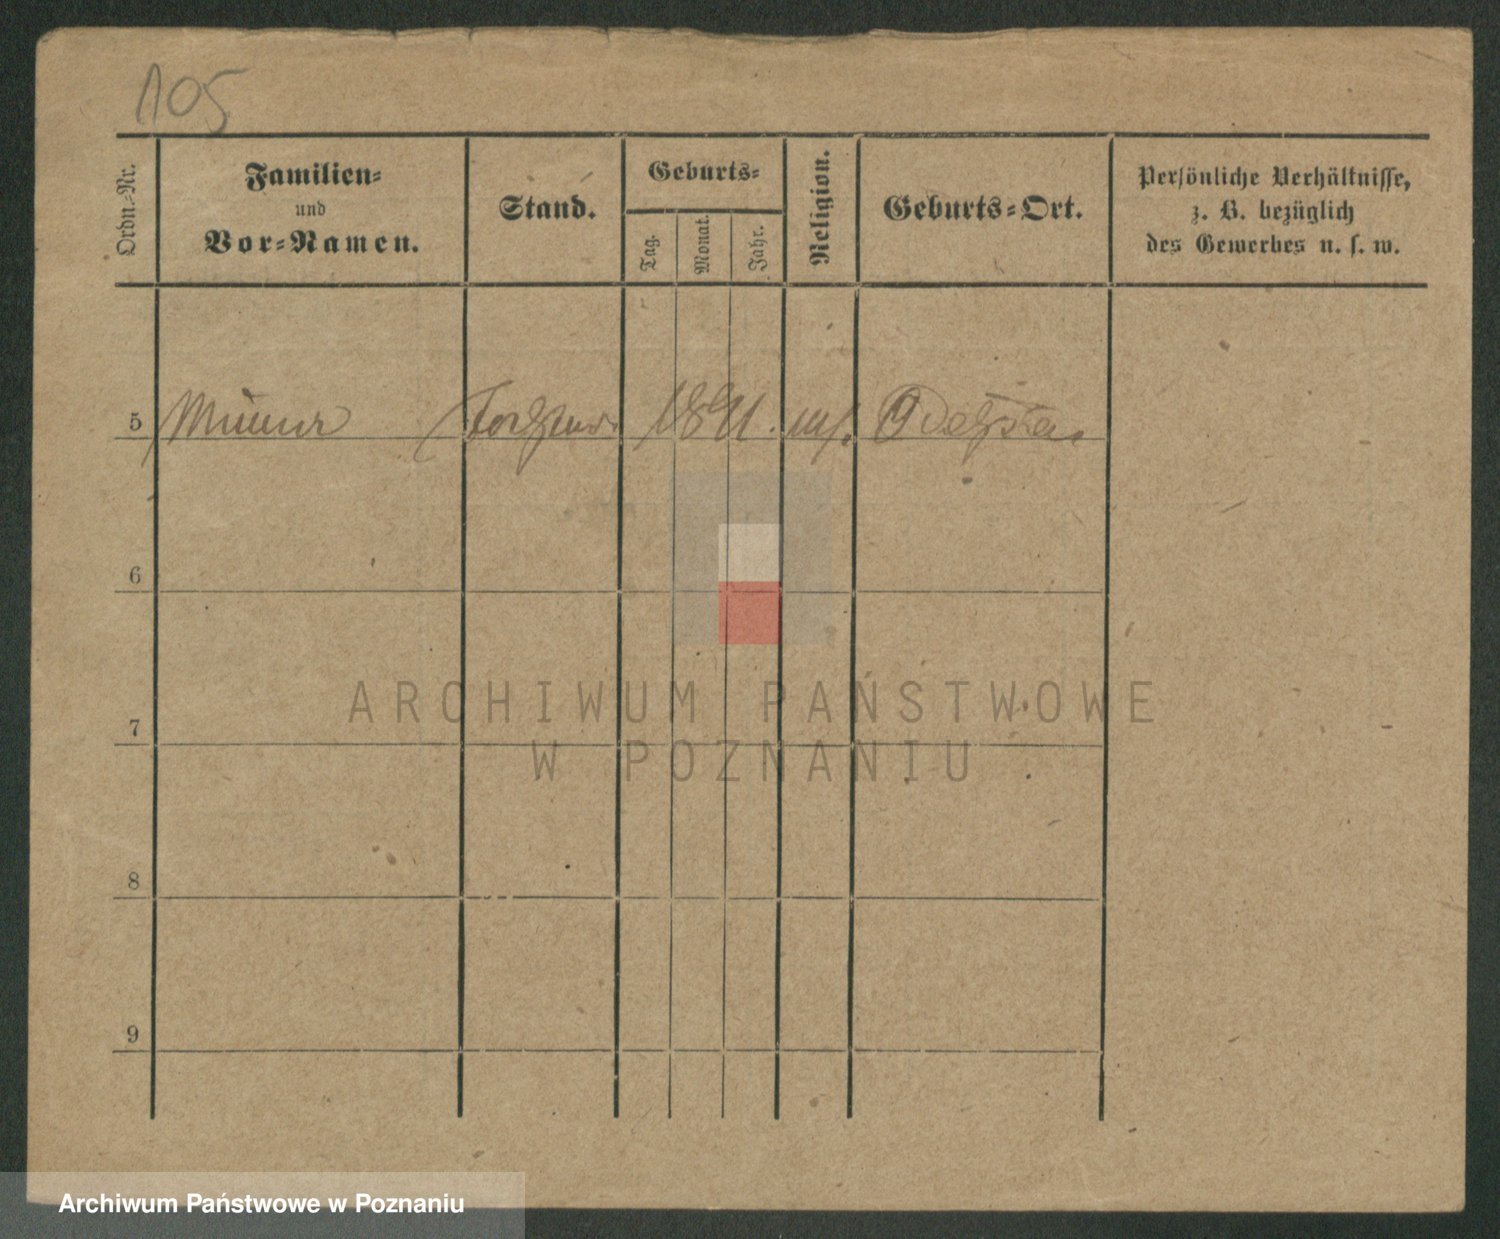 105
Ordn.-Nr.
Familien-
und
Vor-Namen.
Stand.
Geburts-
Tag.
Monat.
Jahr.
Religion.
Geburts-Ort.
Persönliche Verhältnisse,
z. B. bezüglich
des Gewerbes u. s. w.
5 1891.
6
7
8
9
ARCHIWUM PAŃSTWOWE
W POZNANIU
Archiwum Państwowe w Poznaniu